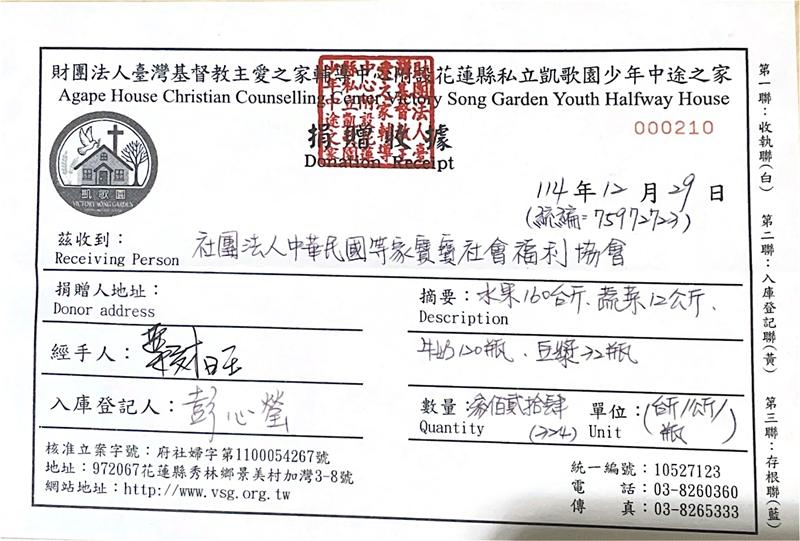 財團法人臺灣基督教主愛之家輔導中心附設花蓮縣私立凱歌園少年中途之家
Agape House Christian Counselling Center Victory Song Garden Youth Halfway House
捐贈收據
Donation Receipt
000210
凱歌園
VICTORY SONG GARDEN
114年12月29日
(統編:75972723)
茲收到:
Receiving Person
社團法人中華民國等家寶寶社會福利協會
捐贈人地址:
Donor address
摘要:水果160台斤、蔬菜12公斤、
Description
牛奶120瓶、豆漿32瓶
經手人:
入庫登記人:彭心瑩
數量:參佰貳拾肆
Quantity (324)
單位:(台斤/公斤/瓶)
Unit
核准立案字號:府社婦字第1100054267號
地址:972067花蓮縣秀林鄉景美村加灣3-8號
網站地址:http://www.vsg.org.tw
統一編號:10527123
電話:03-8260360
傳真:03-8265333
第一聯:收執聯(白)
第二聯:入庫登記聯(黃)
第三聯:存根聯(藍)